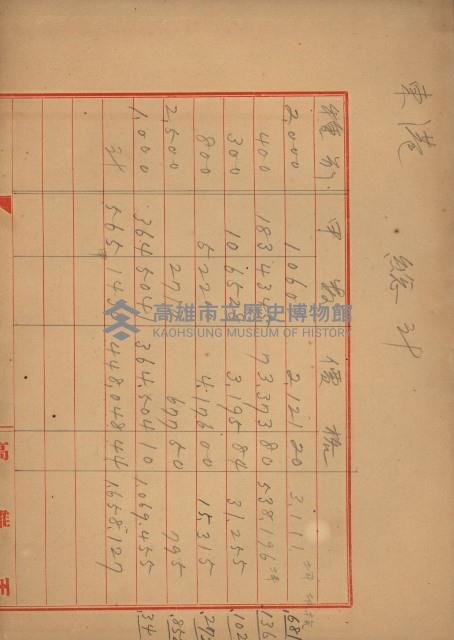 東港 總計
種別 甲數 價格
2,000 1060 2,121 20 3,111
400 183 434 73,373 80 538,196
300 10 652 3,195 84 31,255
800 522 4,176 00 15,315
2,500 27 677 50 795
1,000 364 504 364,504 10 1,069,455
計 565 143 448,048 44 1,658,127
高雄市立歷史博物館
KAOHSIUNG MUSEUM OF HISTORY
高雄